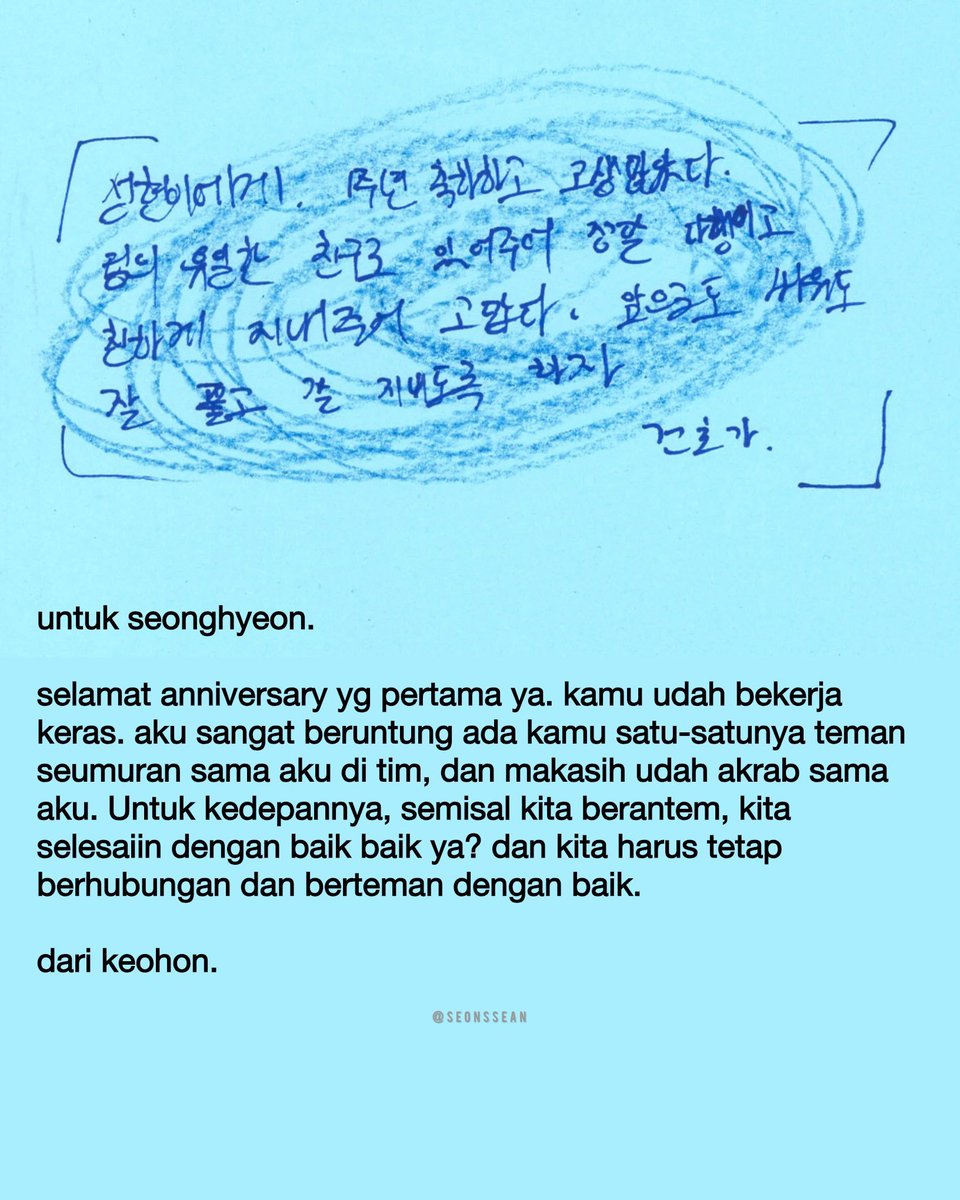 성현이에게. 1주년 축하하고 고생 많았다.
팀의 유일한 친구로 있어주어 정말 다행이고
친하게 지내주어 고맙다. 앞으로도 싸워도
잘 풀고 잘 지내도록 하자
건호가.
untuk seonghyeon.
selamat anniversary yg pertama ya. kamu udah bekerja
keras. aku sangat beruntung ada kamu satu-satunya teman
seumuran sama aku di tim, dan makasih udah akrab sama
aku. Untuk kedepannya, semisal kita berantem, kita
selesaiin dengan baik baik ya? dan kita harus tetap
berhubungan dan berteman dengan baik.
dari keohon.
@SEONSSEAN